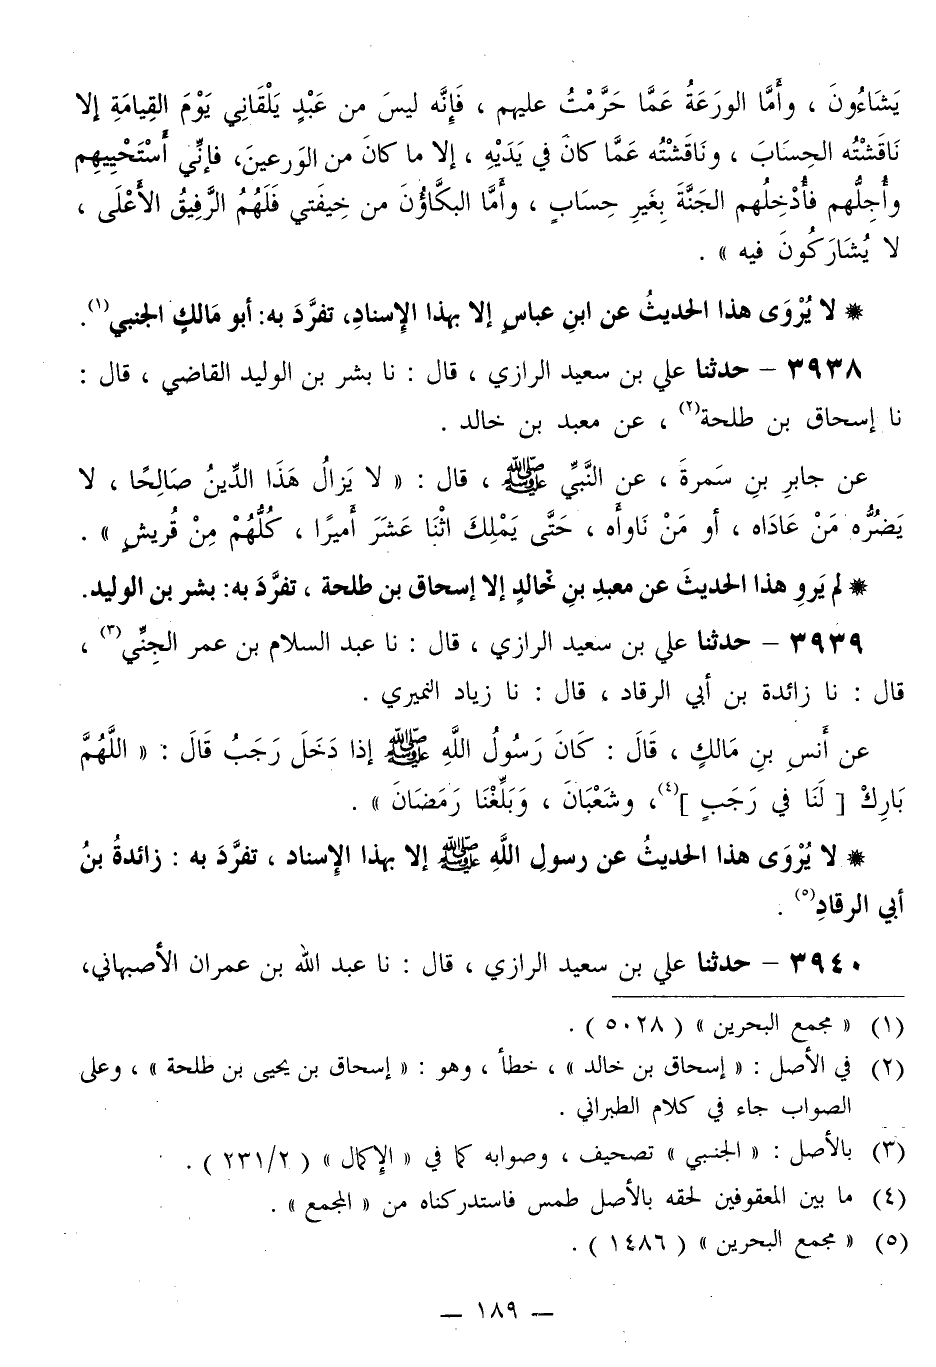 يَشَاءُونَ ، وأَمَّا الورَعَةُ عَمَّا حَرَّمْتُ عليهم ، فَإِنَّه ليسَ من عَبْدٍ يَلْقَانِي يَوْمَ القِيامَةِ إلا
نَاقَشْتُه الحِسَابَ ، ونَاقَشْتُه عَمَّا كانَ في يَدَيْهِ ، إلا ما كانَ من الوَرعينَ، فإنِّي أَسْتَحْيِيهِم
وأُجِلُّهم فأُدْخِلُهم الجَنَّةَ بِغَيرِ حِسَابٍ ، وأَمَّا البكَّاؤُنَ من خِيفَتي فَلَهُمُ الرَّفِيقُ الأَعْلَى ،
لا يُشَارَكُونَ فيه » .
* لا يُرْوَى هذا الحديثُ عن ابنِ عباسٍ إلا بهذا الإِسنادِ، تفرَّدَ به: أبو مَالكٍ الجنبي(١).
٣٩٣٨ – حدثنا علي بن سعيد الرازي ، قال : نا بشر بن الوليد القاضي ، قال :
نا إسحاق بن طلحة(٢) ، عن معبد بن خالد .
عن جابرِ بنِ سَمرةَ ، عن النَّبيِّ ﷺ ، قال : « لا يَزالُ هَذَا الدِّينُ صَالِحًا ، لا
يَضُرُّه مَنْ عَادَاه ، أو مَنْ نَاوأَه ، حَتَّى يَمْلِكَ اثْنَا عَشَرَ أَميرًا ، كُلُّهُمْ مِنْ قُريشٍ » .
* لم يَروِ هذا الحديثَ عن معبدِ بنِ خَالدٍ إلا إسحاق بن طلحة ، تفرَّدَ به: بشر بن الوليد.
٣٩٣٩ – حدثنا علي بن سعيد الرازي ، قال : نا عبد السلام بن عمر الجِنِّي(٣) ،
قال : نا زائدة بن أبي الرقاد ، قال : نا زياد النميري .
عن أَنسِ بنِ مَالكٍ ، قَالَ : كَانَ رَسُولُ اللَّهِ ﷺ إذا دَخَلَ رَجَبُ قَالَ : « اللَّهُمَّ
بَارِكْ [ لَنَا في رَجَبٍ ](٤)، وشَعْبَانَ ، وَبَلِّغْنَا رَمَضَانَ » .
* لا يُرْوَى هذا الحديثُ عن رسولِ اللَّهِ ﷺ إلا بهذا الإِسناد ، تفرَّدَ به : زائدةُ بنُ
أبي الرقادِ(٥) .
٣٩٤٠ – حدثنا علي بن سعيد الرازي ، قال : نا عبد الله بن عمران الأصبهاني،
(١) « مجمع البحرين » ( ٥٠٢٨ ) .
(٢) في الأصل : « إسحاق بن خالد » ، خطأ ، وهو : « إسحاق بن يحيى بن طلحة » ، وعلى
الصواب جاء في كلام الطبراني .
(٣) بالأصل : « الجنبي » تصحيف ، وصوابه كما في « الإِكمال » ( ٢٣١/٢ ) .
(٤) ما بين المعقوفين لحقه بالأصل طمس فاستدركناه من « المجمع » .
(٥) « مجمع البحرين » ( ١٤٨٦ ) .
— ١٨٩ —